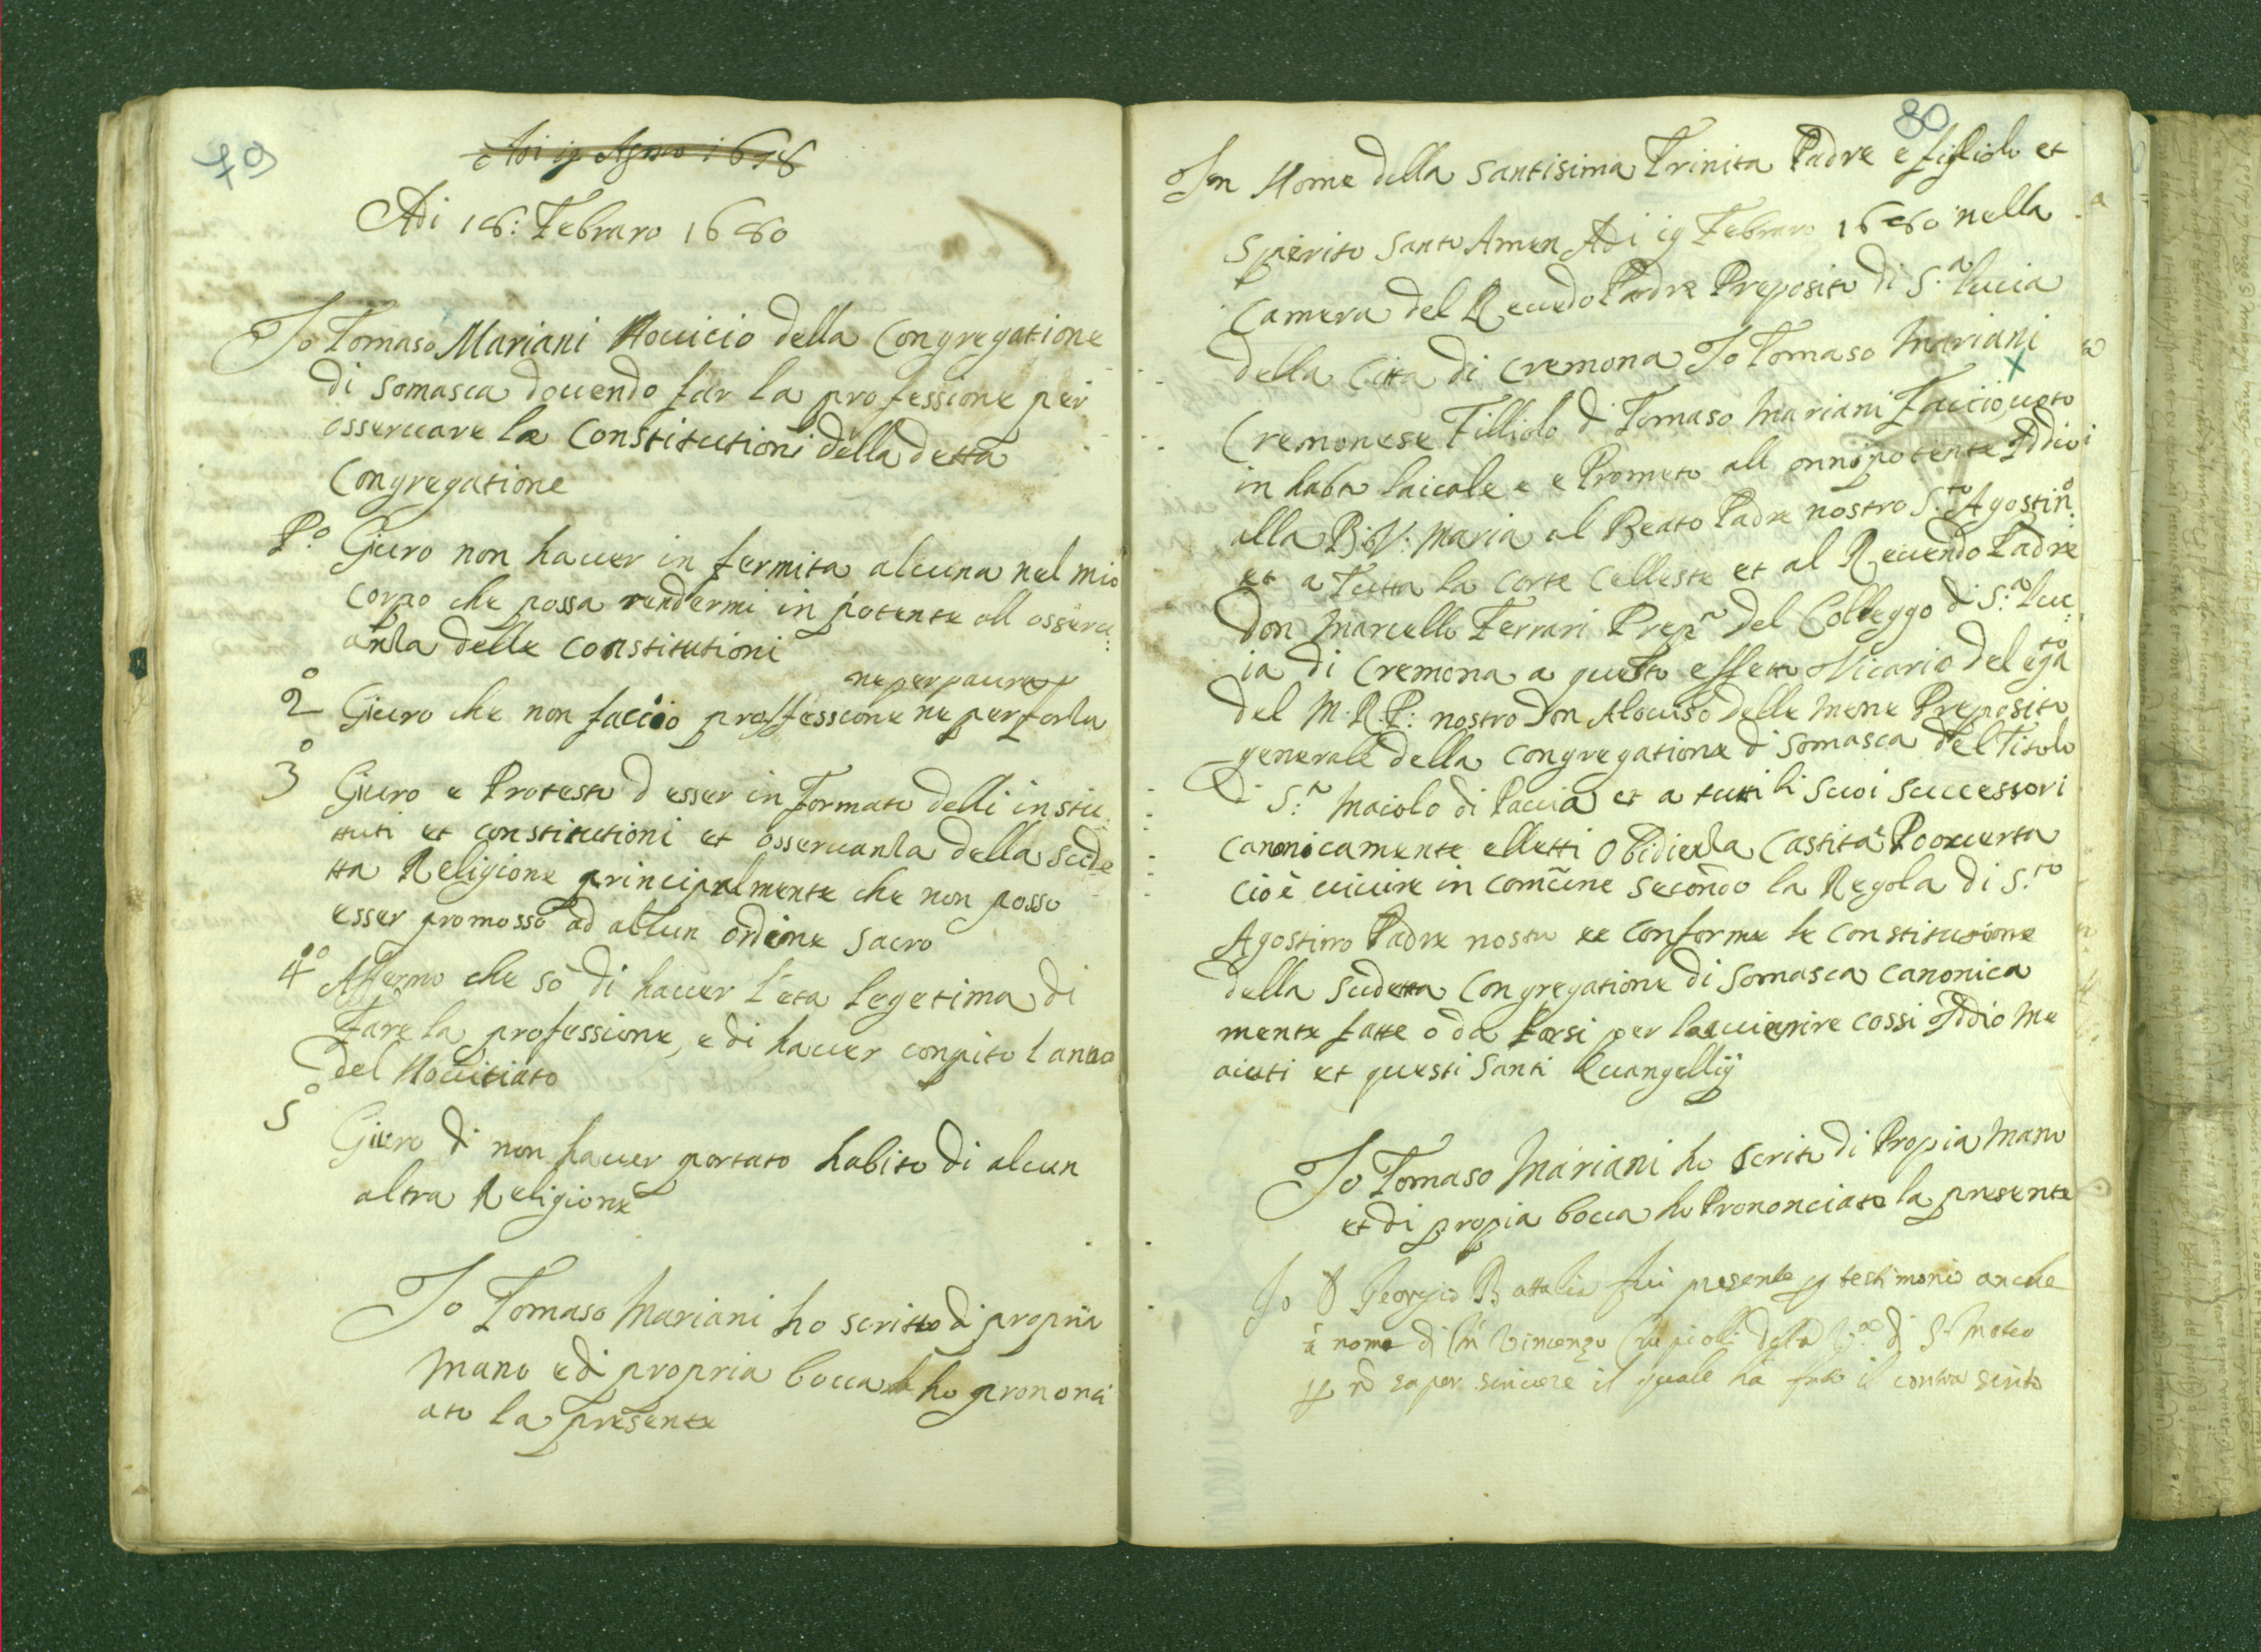 79
Adi 18: Febraro 1680
Io Tomaso Mariani Nouicio della Congregatione
di Somasca douendo far la professione per
osseruare le Constitutioni della detta
Congregatione
P.o Giuro non hauer in fermita alcuna nel mio
corpo che possa rendermi in potente all osseru:
anza delle constitutioni
ne per paura
2o Giuro che non faccio proffessione ne per forza
3o Giuro e Protesto d esser in formato delli insti
ttuti et constitutioni et osseruanza della sude
tta Religione principalmente che non posso
esser promosso ad alcun ordine sacro
4o Affermo che sò di hauer l'eta legetima di
fare la professione, e di hauer conpito l anno
del Nouitiato
5o Giuro di non hauer portato habito di alcun
altra Religione
Io Tomaso Mariani ho scritto di propria
mano e di propria bocca ho prononci
ato la presente
80
In Nome della Santisima Trinita Padre e figliolo et
Spirito Santo Amen Adi 19 Febraro 1680 nella
Camera del Reuedo Padre Preposito di S.a Lucia
della Citta di Cremona Io Tomaso Mariani
Cremonese Filliolo di Tomaso Mariani Faccio uoto
in habto laicale e e Prometo all onnipotente Iddio
alla B: V: Maria al Beato Padre nostro S.to Agostin.o
et a Tutta la Corte Celleste et al Reuendo Padre
Don Marcello Ferrari Prep.o del Colleggo di S.a Luc:
ia di Cremona a questo effetto Vicario delega.to
del M. R. P: nostro Don Alouiso delle Mene Preposito
generale della Congregatione di Somasca del Titolo
di S.n Maiolo di Pauia et a tutti li Suoi Successori
Canonicamente elletti Obidienza Castita e Pouerta
cio è uiuire in comune secondo la Regola di S.to
Agostino Padre nostro et Conforme le Constitutione
della Sudetta Congregatione di Somasca Canonica
mente fatte o da farsi per lauuenire cossi Iddio me
aiuti et questi Santi Euangellij
Io Tomaso Mariani ho Scrito di Propia Mano
et di propia bocca ho Prononciato la presente
Io D Georgio Battalia fui presente p testimonio anche
à nome di Vincenzo della di S. Mateo
p nõ saper scriuere il quale hà fato il contra scrito